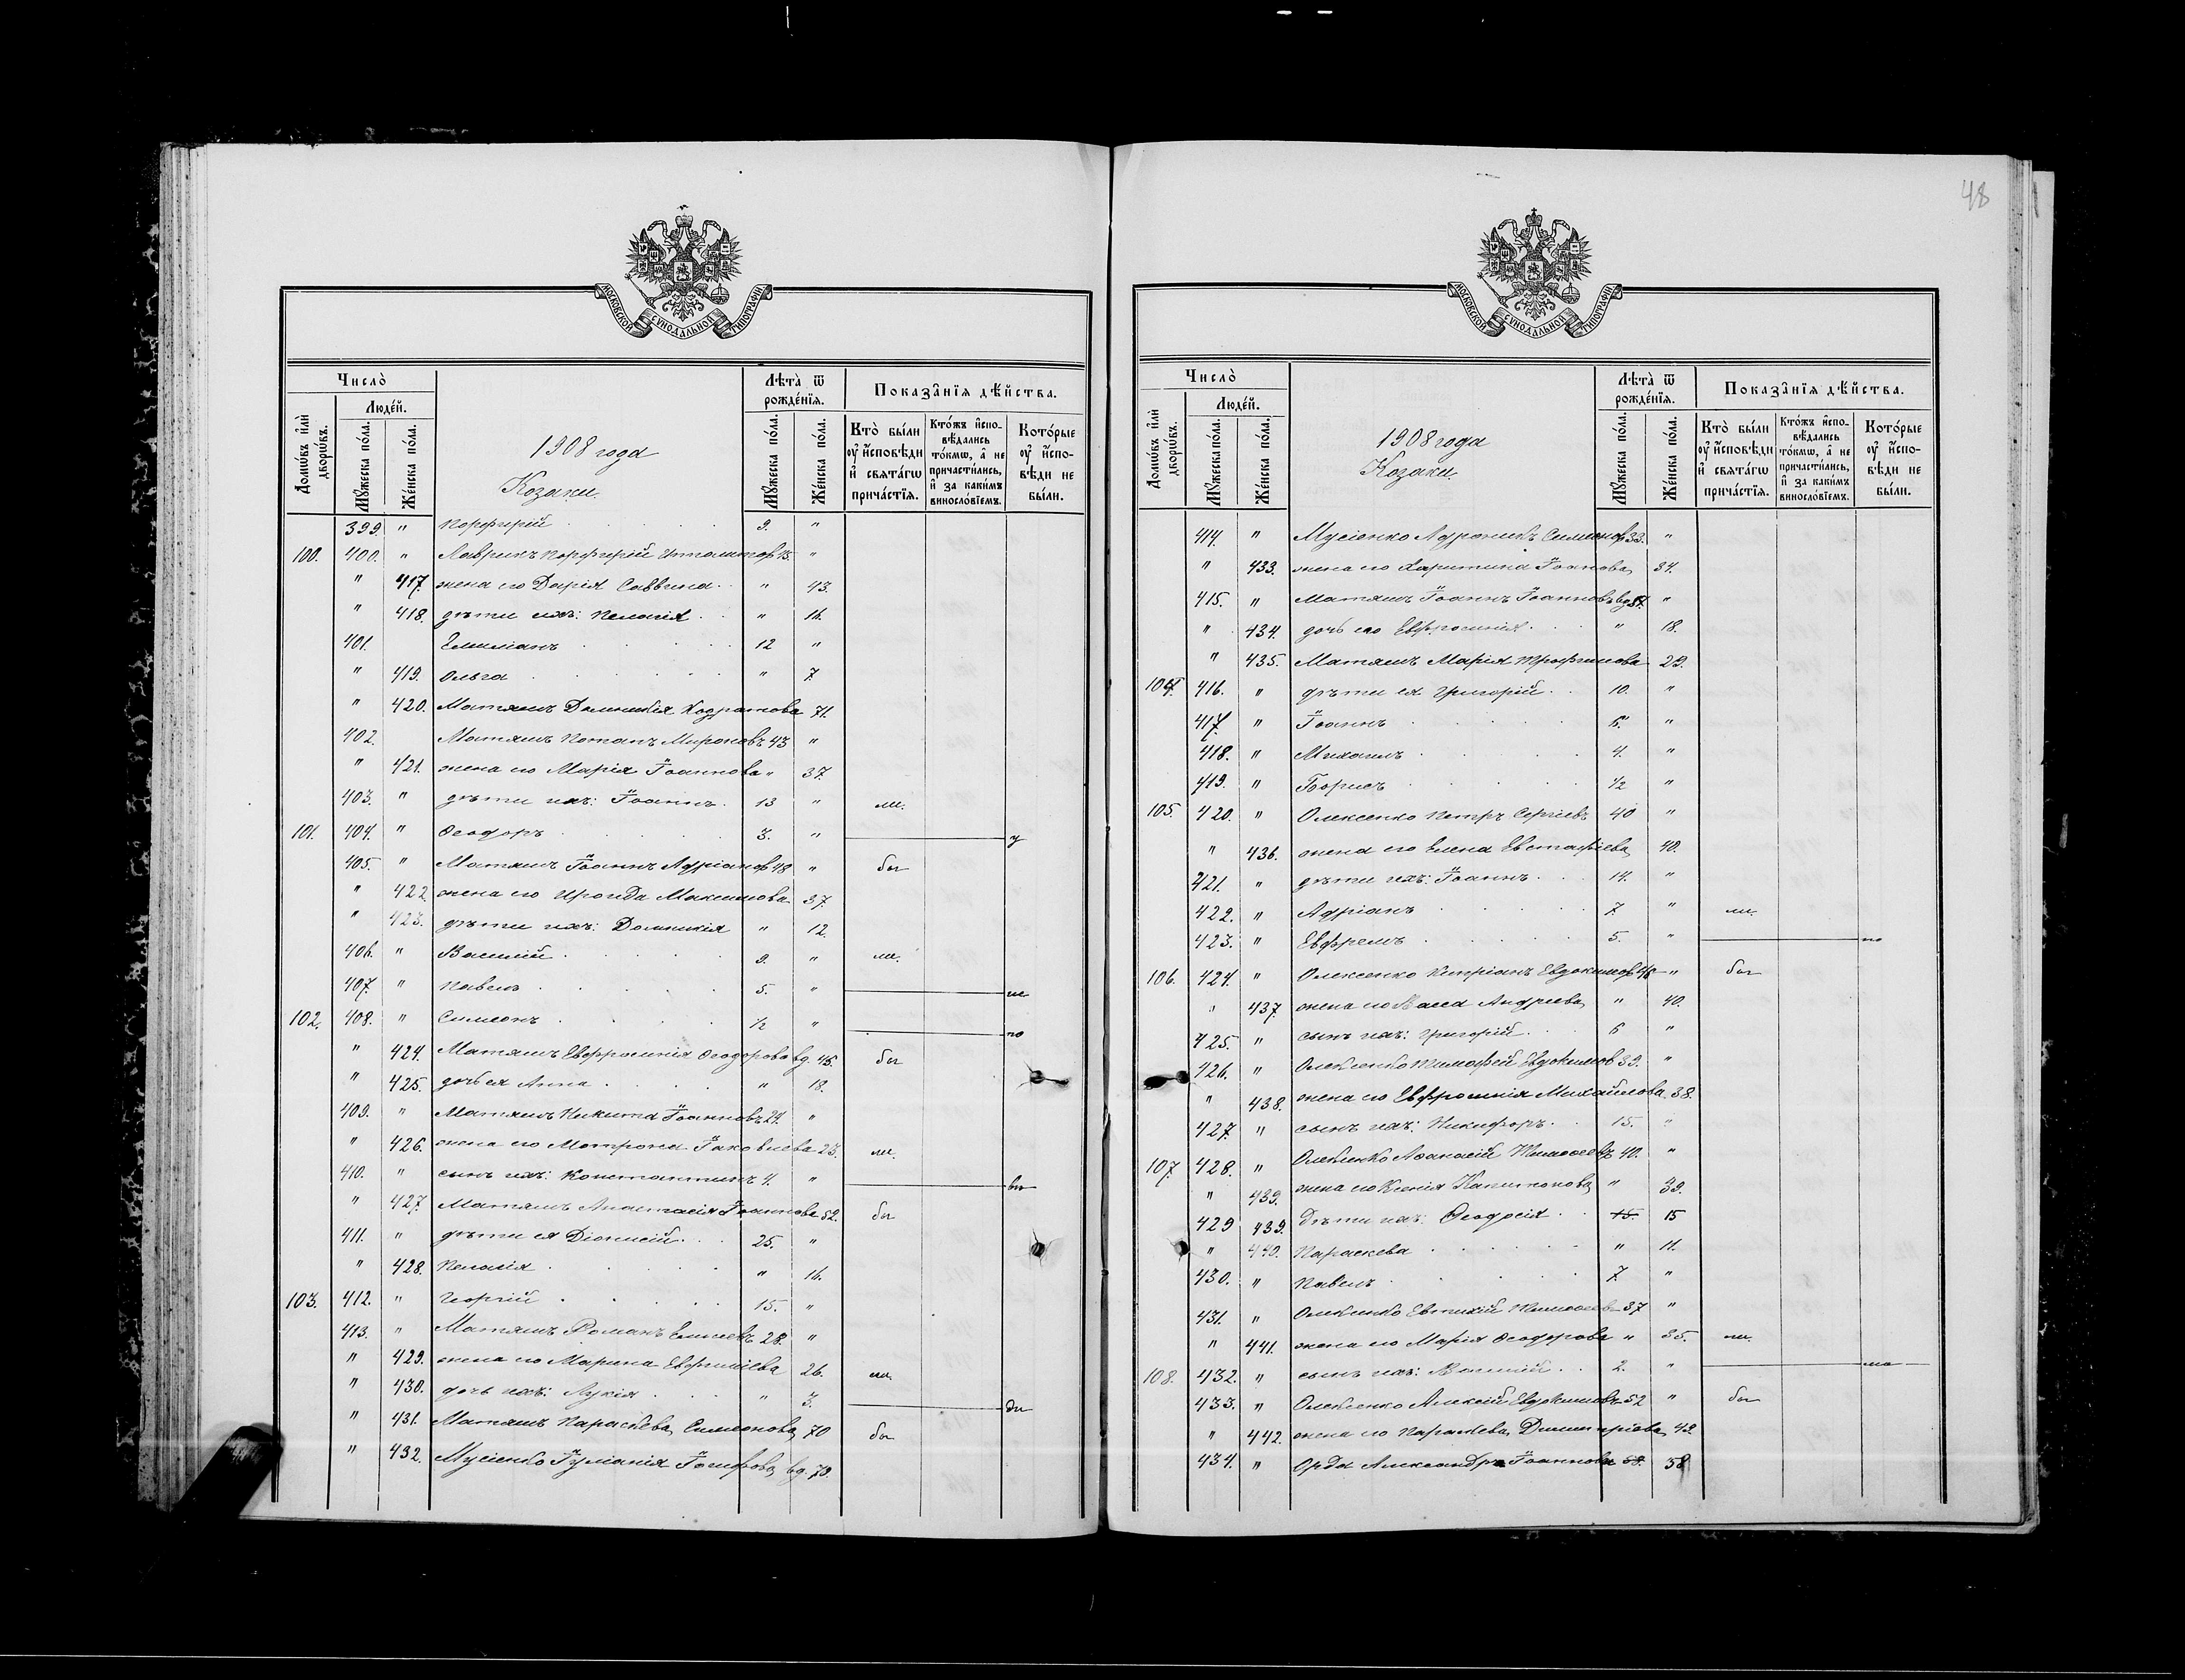 48
МОСКОВСКОЙ СѴНОДАЛЬНОЙ ТИПОГРАФІИ
Число̀
Людей.
Домѡвъ и҆лѝ дворѡвъ.
Мꙋжеска по́ла.
Же́нска по́ла.
1908 года
Козаки.
Лѣта̀ ѿ рожде́нїѧ.
Мꙋжеска по́ла.
Же́нска по́ла.
Показа̑нїѧ дѣ́йства.
Кто̀ бы́ли оу҆ и҆́сповѣди и҆ свѧта́гѡ прича́стїѧ.
Кто́жъ и҆спо- вѣ́дались то́кмѡ, а҆ не причасти́лись, и҆ за каки́мъ винословїемъ.
Кото́рые оу҆ и҆́спо- вѣди не бы́ли.
399. " Порфирій 9. "
100. 400. " Лаврикъ Порфирій Ипполитов 45. "
" 417. жена его Дарія Саввина " 43.
" 418. дѣти ихъ: Пелагія " 16.
401. Емиліанъ 12 "
" 419. Ольга " 7.
" 420. Матяшъ Домникія Кодратова 71.
402. Матяшъ Потапъ Мироновъ 43 "
" 421. жена его Марія Іоаннова " 37.
403. " дѣти ихъ: Іоаннъ 13 " ли.
101. 404. " Ѳеодоръ 3. " у
405. " Матяшъ Іоаннъ Адріанов 48 " бы
" 422. жена его Ироида Максимова 37.
" 423. дѣти ихъ: Домникія " 12.
406. " Василій 9. " ли.
407. " Павелъ 5. " ис
102. 408. " Симеонъ 1/2 " по
" 424. Матяшъ Евфросинія Ѳеодорова вд. 45. бы
" 425. дочь ея Анна " 18.
409. " Матяшъ Никита Іоанновъ 24. "
" 426. жена его Матрона Іаковлева 23. ли.
410. " сынъ ихъ: Константинъ 4. " вѣ
" 427. Матяшъ Анастасія Іоаннова 52. бы
411. " дѣти ея Діонисій 25. "
" 428. Пелагія " 16.
103. 412. " Георгій 15. "
413. " Матяшъ Романъ Елисеевъ 28. "
" 429. жена его Марина Евфиміева 26. ли.
" 430. дочь ихъ: Лукія " 3. ди
" 431. Матяшъ Параскева Симеонова 70 бы
" 432. Мусіенко Іуліанія Іосифова вд. 70.
МОСКОВСКОЙ СѴНОДАЛЬНОЙ ТИПОГРАФІИ
Число̀
Людей.
Домѡвъ и҆лѝ дворѡвъ.
Мꙋжеска по́ла.
Же́нска по́ла.
1908 года
Козаки.
Лѣта̀ ѿ рожде́нїѧ.
Мꙋжеска по́ла.
Же́нска по́ла.
Показа̑нїѧ дѣ́йства.
Кто̀ бы́ли оу҆ и҆́сповѣди и҆ свѧта́гѡ прича́стїѧ.
Кто́жъ и҆спо- вѣ́дались то́кмѡ, а҆ не причасти́лись, и҆ за каки́мъ винословїемъ.
Кото́рые оу҆ и҆́спо- вѣди не бы́ли.
414. " Мусіенко Адроникъ Симеонов 33. "
" 433. жена его Харитина Іоаннова 34.
415. " Матяшъ Іоаннъ Іоанновъ вд. 57. "
" 434. дочь его Евфросинія " 18.
" 435. Матяшъ Марія Трофимова 29.
104. 416. " дѣти ея Григорій 10. "
417. " Іоаннъ 6. "
418. " Михаилъ 4. "
419. " Борисъ 1/2 "
105. 420. " Олексенко Петръ Сергіевъ 40 "
" 436. жена его Елена Евстафіева 40.
421. " дѣти ихъ: Іоаннъ 14. "
422. " Адріанъ 7. " ли.
423. " Ефремъ 5. " по
106. 424. " Олексенко Кипріанъ Евдокимов 46 " бы
" 437. жена его Васса Андреева " 40.
425. " сынъ ихъ: Григорій 6 "
426. " Олексенко Тимофей Евдокимов 39. "
" 438. жена его Евфросинія Михайлова 38.
427. " сынъ ихъ: Никифоръ 15. "
107. 428. " Олексенко Аѳанасій Тимоѳеевъ 40. "
" 439. жена его Ксенія Капитонова " 39.
429 439. Дѣти ихъ: Ѳеодосія 15. 15
" 440. Параскева " 11.
430. " Павелъ 7. "
431. " Олексенко Евтихій Тимоѳеевъ 37 "
" 441. жена его Марія Ѳеодорова " 35. ли.
108. 432. " сынъ ихъ: Василій 2. " ма
433. " Олексенко Алексій Евдокимовъ 52 " бы
" 442. жена его Параскева Димитріева 49.
434. " Орда Александра Іоаннова 58. 58